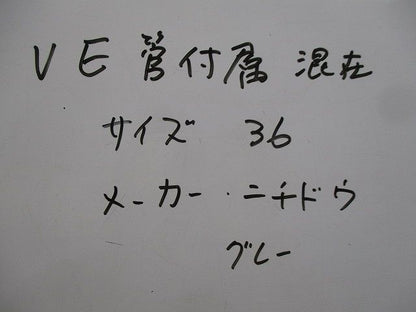 VE管付属 混在
サイズ 36
メーカー・ニチドウ
グレー